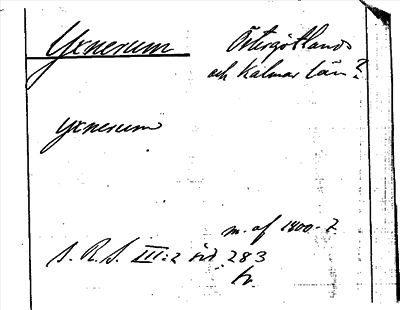 Yxnerum Östergötlands
och Kalmar län?
Yxnerum
m. af 1400-t.
S. R. S. III:2 sid. 283